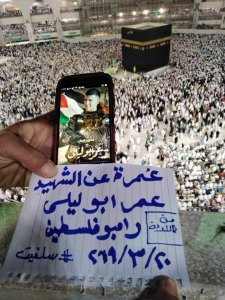 عمرة عن الشهيد
عمر ابو ليلى
رامبو فلسطين
٢٠١٩/٣/٢٠
# سلفيت
من